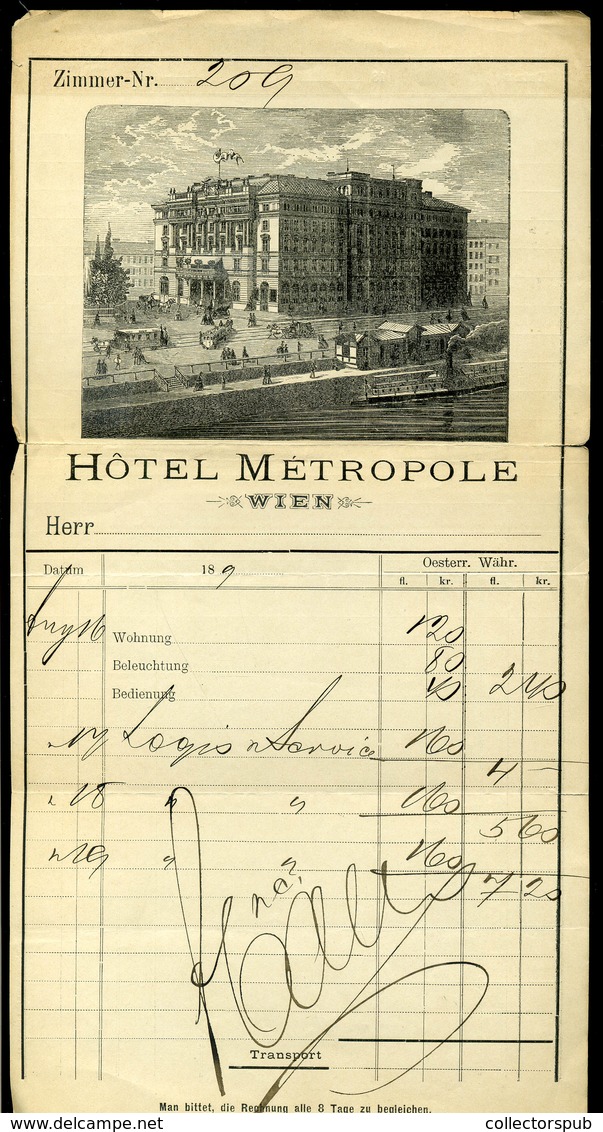 Zimmer-Nr. 209
HÔTEL MÉTROPOLE
WIEN
Herr
Datum 18 9 Oesterr. Währ.
fl. kr. fl. kr.
Aug 16 Wohnung 1 20
Beleuchtung 80
Bedienung 40 2 40
" 17 Logis u Service 1 60
4 —
" 18 " " 1 60
5 60
" 19 " " 1 60
7 20
Transport
Man bittet, die Rechnung alle 8 Tage zu begleichen.
collectorspub.com